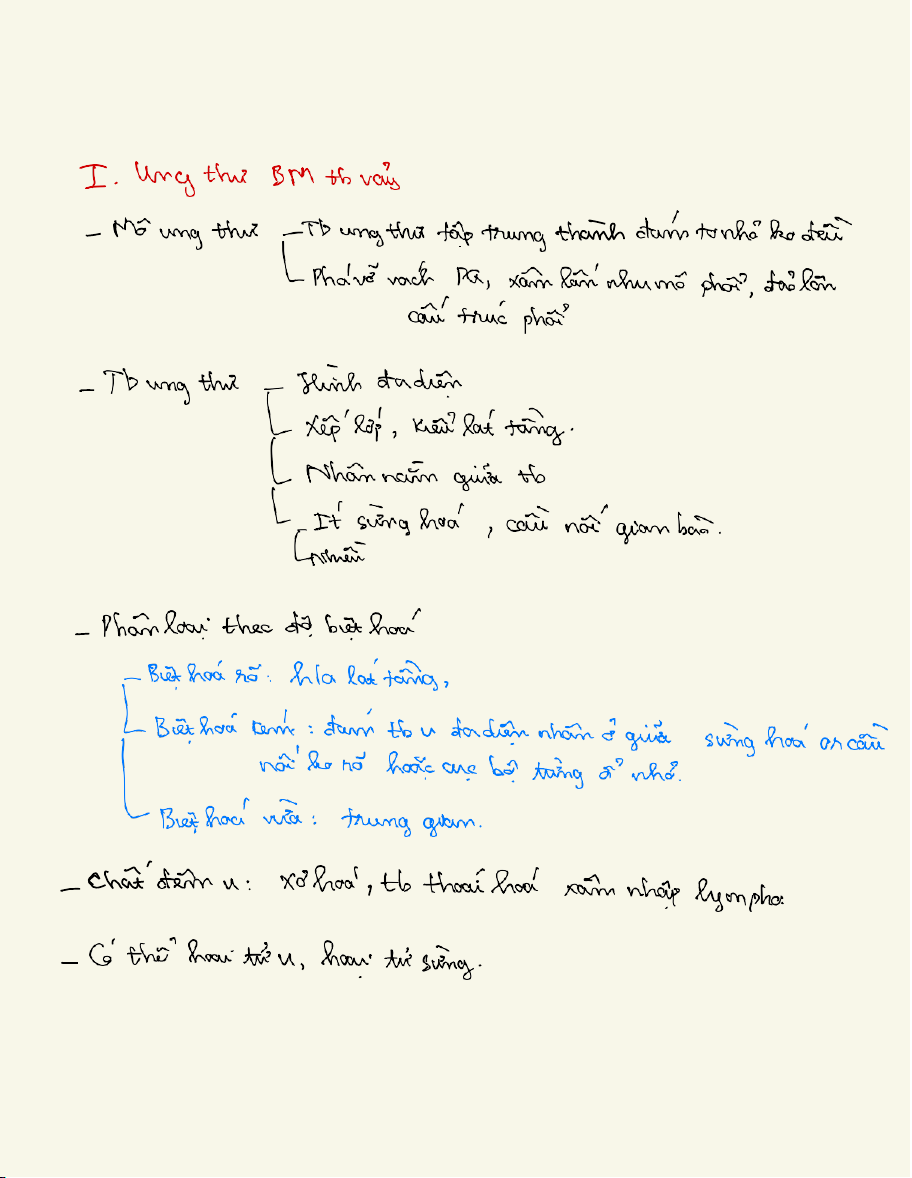 I. Ung thư BM tb vảy
- Mô ung thư - Tb ung thư tập trung thành đám to nhỏ ko đều
- Phá vỡ vách PN, xâm lấn nhu mô phổi, đảo lộn
cấu trúc phổi
- Tb ung thư - Hình đa diện
- Xếp lớp, kiểu lát tầng.
- Nhân nằm giữa tb
- Ít sừng hoá, cầu nối gian bào.
nhiều
- Phân loại theo độ biệt hoá
- Biệt hoá rõ: h/a lát tầng,
- Biệt hoá kém: đám tb u đa diện nhân ở giữa sừng hoá or cầu
nối ko rõ hoặc cục bộ từng ổ nhỏ.
- Biệt hoá vừa: trung gian.
- Chất đệm u: xơ hoá, tb thoái hoá xâm nhập lympho.
- Có thể hoại tử u, hoại tử sừng.